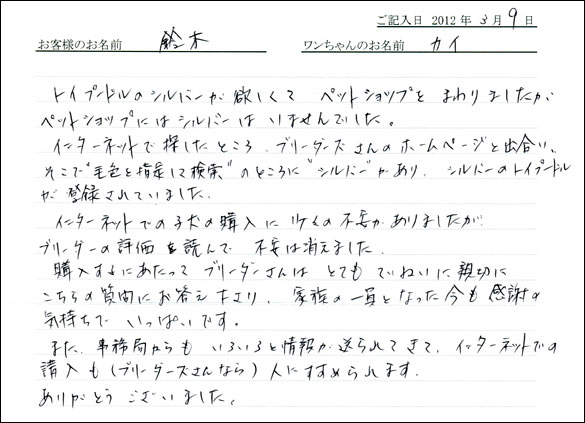 ご記入日 2012 年 3 月 9 日
お客様のお名前 鈴木 ワンちゃんのお名前 カイ
トイプードルのシルバーが欲しくて ペットショップを まわりましたが
ペットショップにはシルバーは いませんでした。
インターネットで探したところ、ブリーダーズさんのホームページと出合い、
そこで"毛色を指定して検索"のところに"シルバー"があり、シルバーのトイプードル
が登録されていました。
インターネットでの子犬の購入に 少々の不安がありましたが
ブリーダーの評価を読んで 不安は消えました。
購入するにあたって ブリーダーさんは とても ていねいに親切に
こちらの質問にお答え下さり、家族の一員となった今も感謝の
気持ちで いっぱいです。
また、事務局からも いろいろと情報が送られてきて、インターネットでの
購入も(ブリーダーズさんなら)人にすすめられます。
ありがとう ございました。